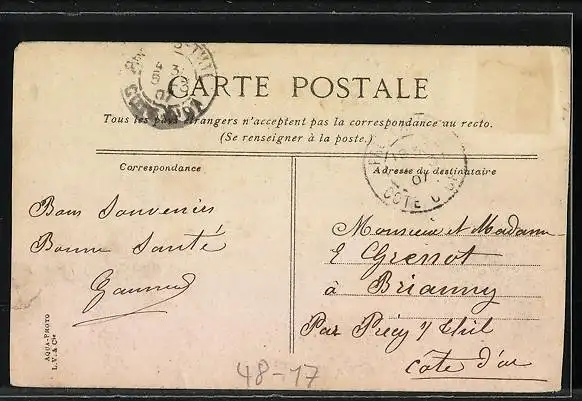 CARTE POSTALE
Tous les pays étrangers n'acceptent pas la correspondance au recto.
(Se renseigner à la poste.)
Correspondance
Bons Souvenirs
Bonne Santé
AQUA-PHOTO
L.V. & Cie
Adresse du destinataire
07
COTE D'OR
Monsieur et Madame
à Brianny
Par Précy s/ Thil
Côte d'or
48-17